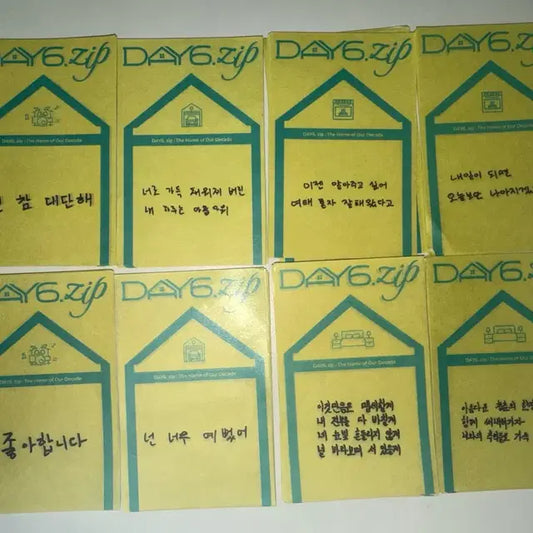 DAY6.zip
DAY6.zip : The Name of Our Decade
참 대단해
DAY6.zip
DAY6.zip : The Name of Our Decade
너로 가득 채워져 버린
내 하루는 아름다워
DAY6.zip
DAY6.zip : The Name of Our Decade
이젠 안아주고 싶어
여태 혼자 잘해왔다고
DAY6.zip
DAY6.zip : The Name of Our
내일이 되면
오늘보단 나아지겠
DAY6.zip
DAY6.zip : The Name of Our Decade
좋아합니다
DAY6.zip
DAY6.zip : The Name of Our Decade
넌 너무 예뻤어
DAY6.zip
DAY6.zip : The Name of Our Decade
이것만큼은 맹세할게
내 전부를 다 바칠게
네 눈빛 흔들리지 않게
널 바라보며 서 있을게
DAY6.zip
DAY6.zip : The Name of Our Decade
아름다운 청춘의 한
함께 써내려가자
너와의 추억들로 가득